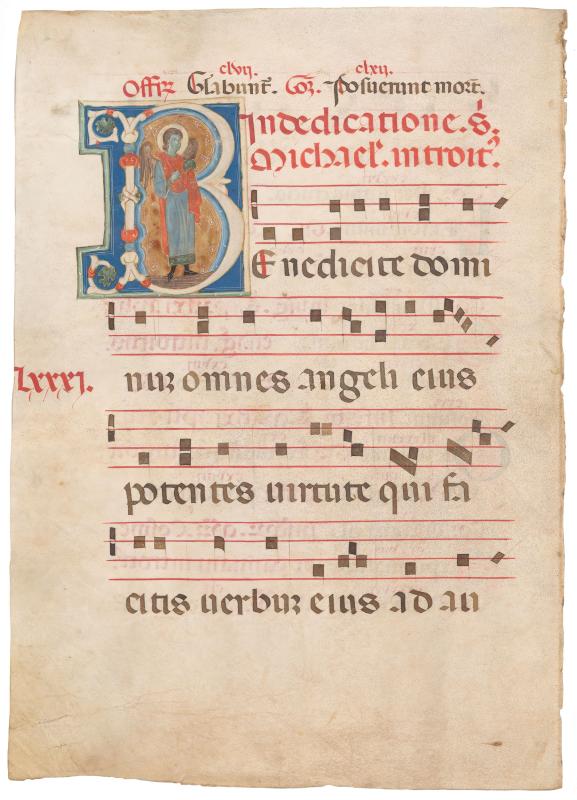 clvij. clxij.
Offrz Glabunt̄. Coz̄. Posuerunt mort̄.
In dedicatione. S.
Michael. introit᷒.
BEnedicite domi
num omnes angeli eius
Lxxxi.
potentes uirtute qui fa
citis uerbum eius ad au